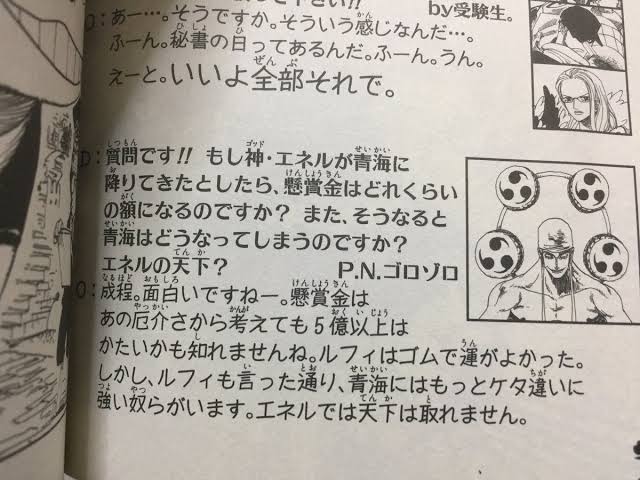 by受験生。
O：あー…。そうですか。そういう感じなんだ…。
ふーん。秘書の日ってあるんだ。ふーん。うん。
えーと。いいよ全部それで。
D：質問です!! もし神・エネルが青海に
降りてきたとしたら、懸賞金はどれくらい
の額になるのですか？ また、そうなると
青海はどうなってしまうのですか？
エネルの天下？ P.N.ゴロゾロ
O：成程。面白いですねー。懸賞金は
あの厄介さから考えても５億以上は
かたいかも知れませんね。ルフィはゴムで運がよかった。
しかし、ルフィも言った通り、青海にはもっとケタ違いに
強い奴らがいます。エネルでは天下は取れません。